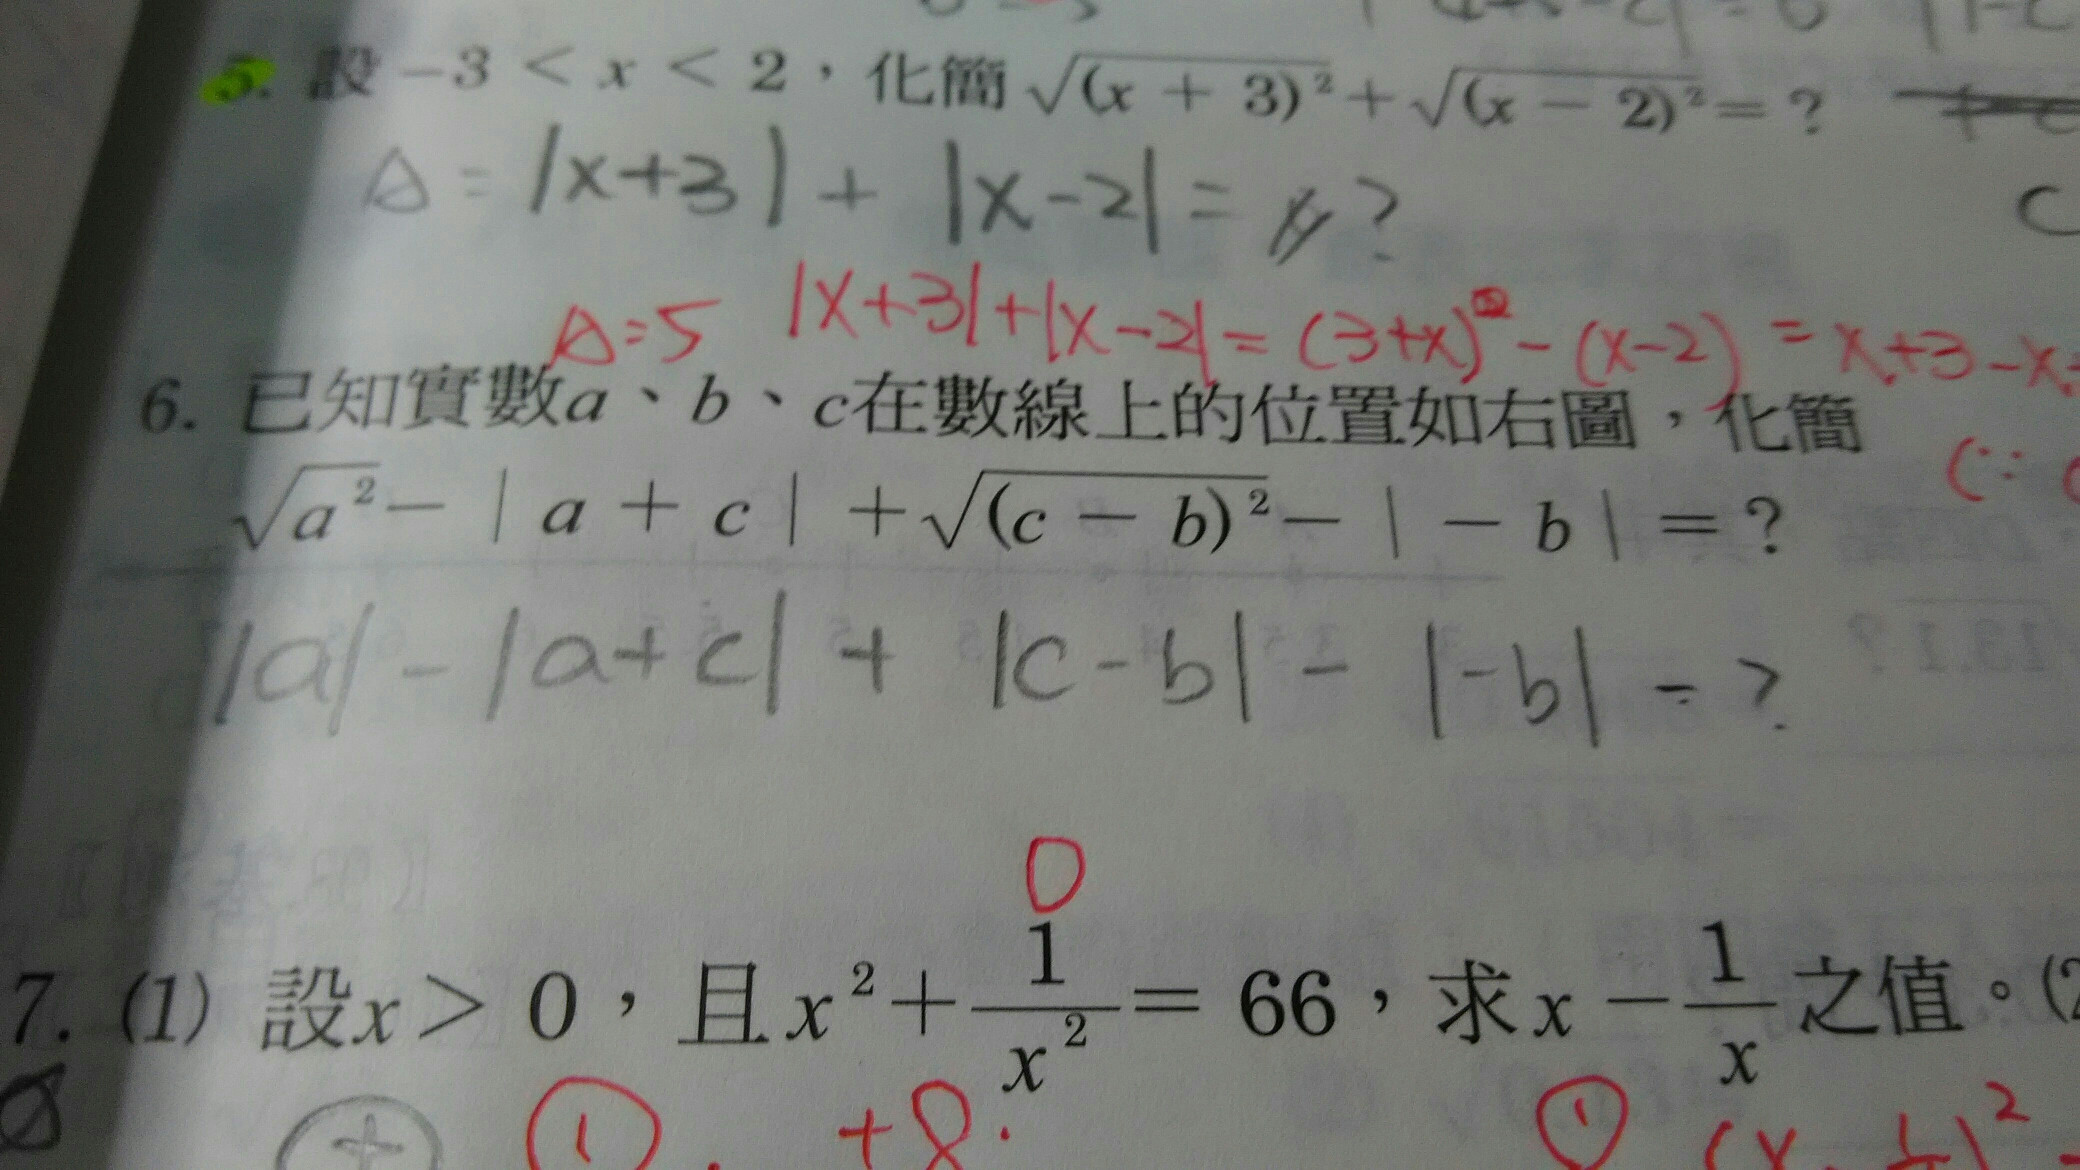 5. 設 −3 < x < 2，化簡 √(x + 3)² + √(x − 2)² = ?
A = |x+3| + |x-2| = ?
A=5 |x+3|+|x-2| = (3+x) - (x-2) = x+3-x+
6. 已知實數a、b、c在數線上的位置如右圖，化簡
√a² − | a + c | + √(c − b)² − | − b | = ?
|a| - |a+c| + |c-b| - |-b| = ?
0
7. (1) 設x > 0，且 x² + 1/x² = 66，求 x − 1/x 之值。(2
① +8. ①